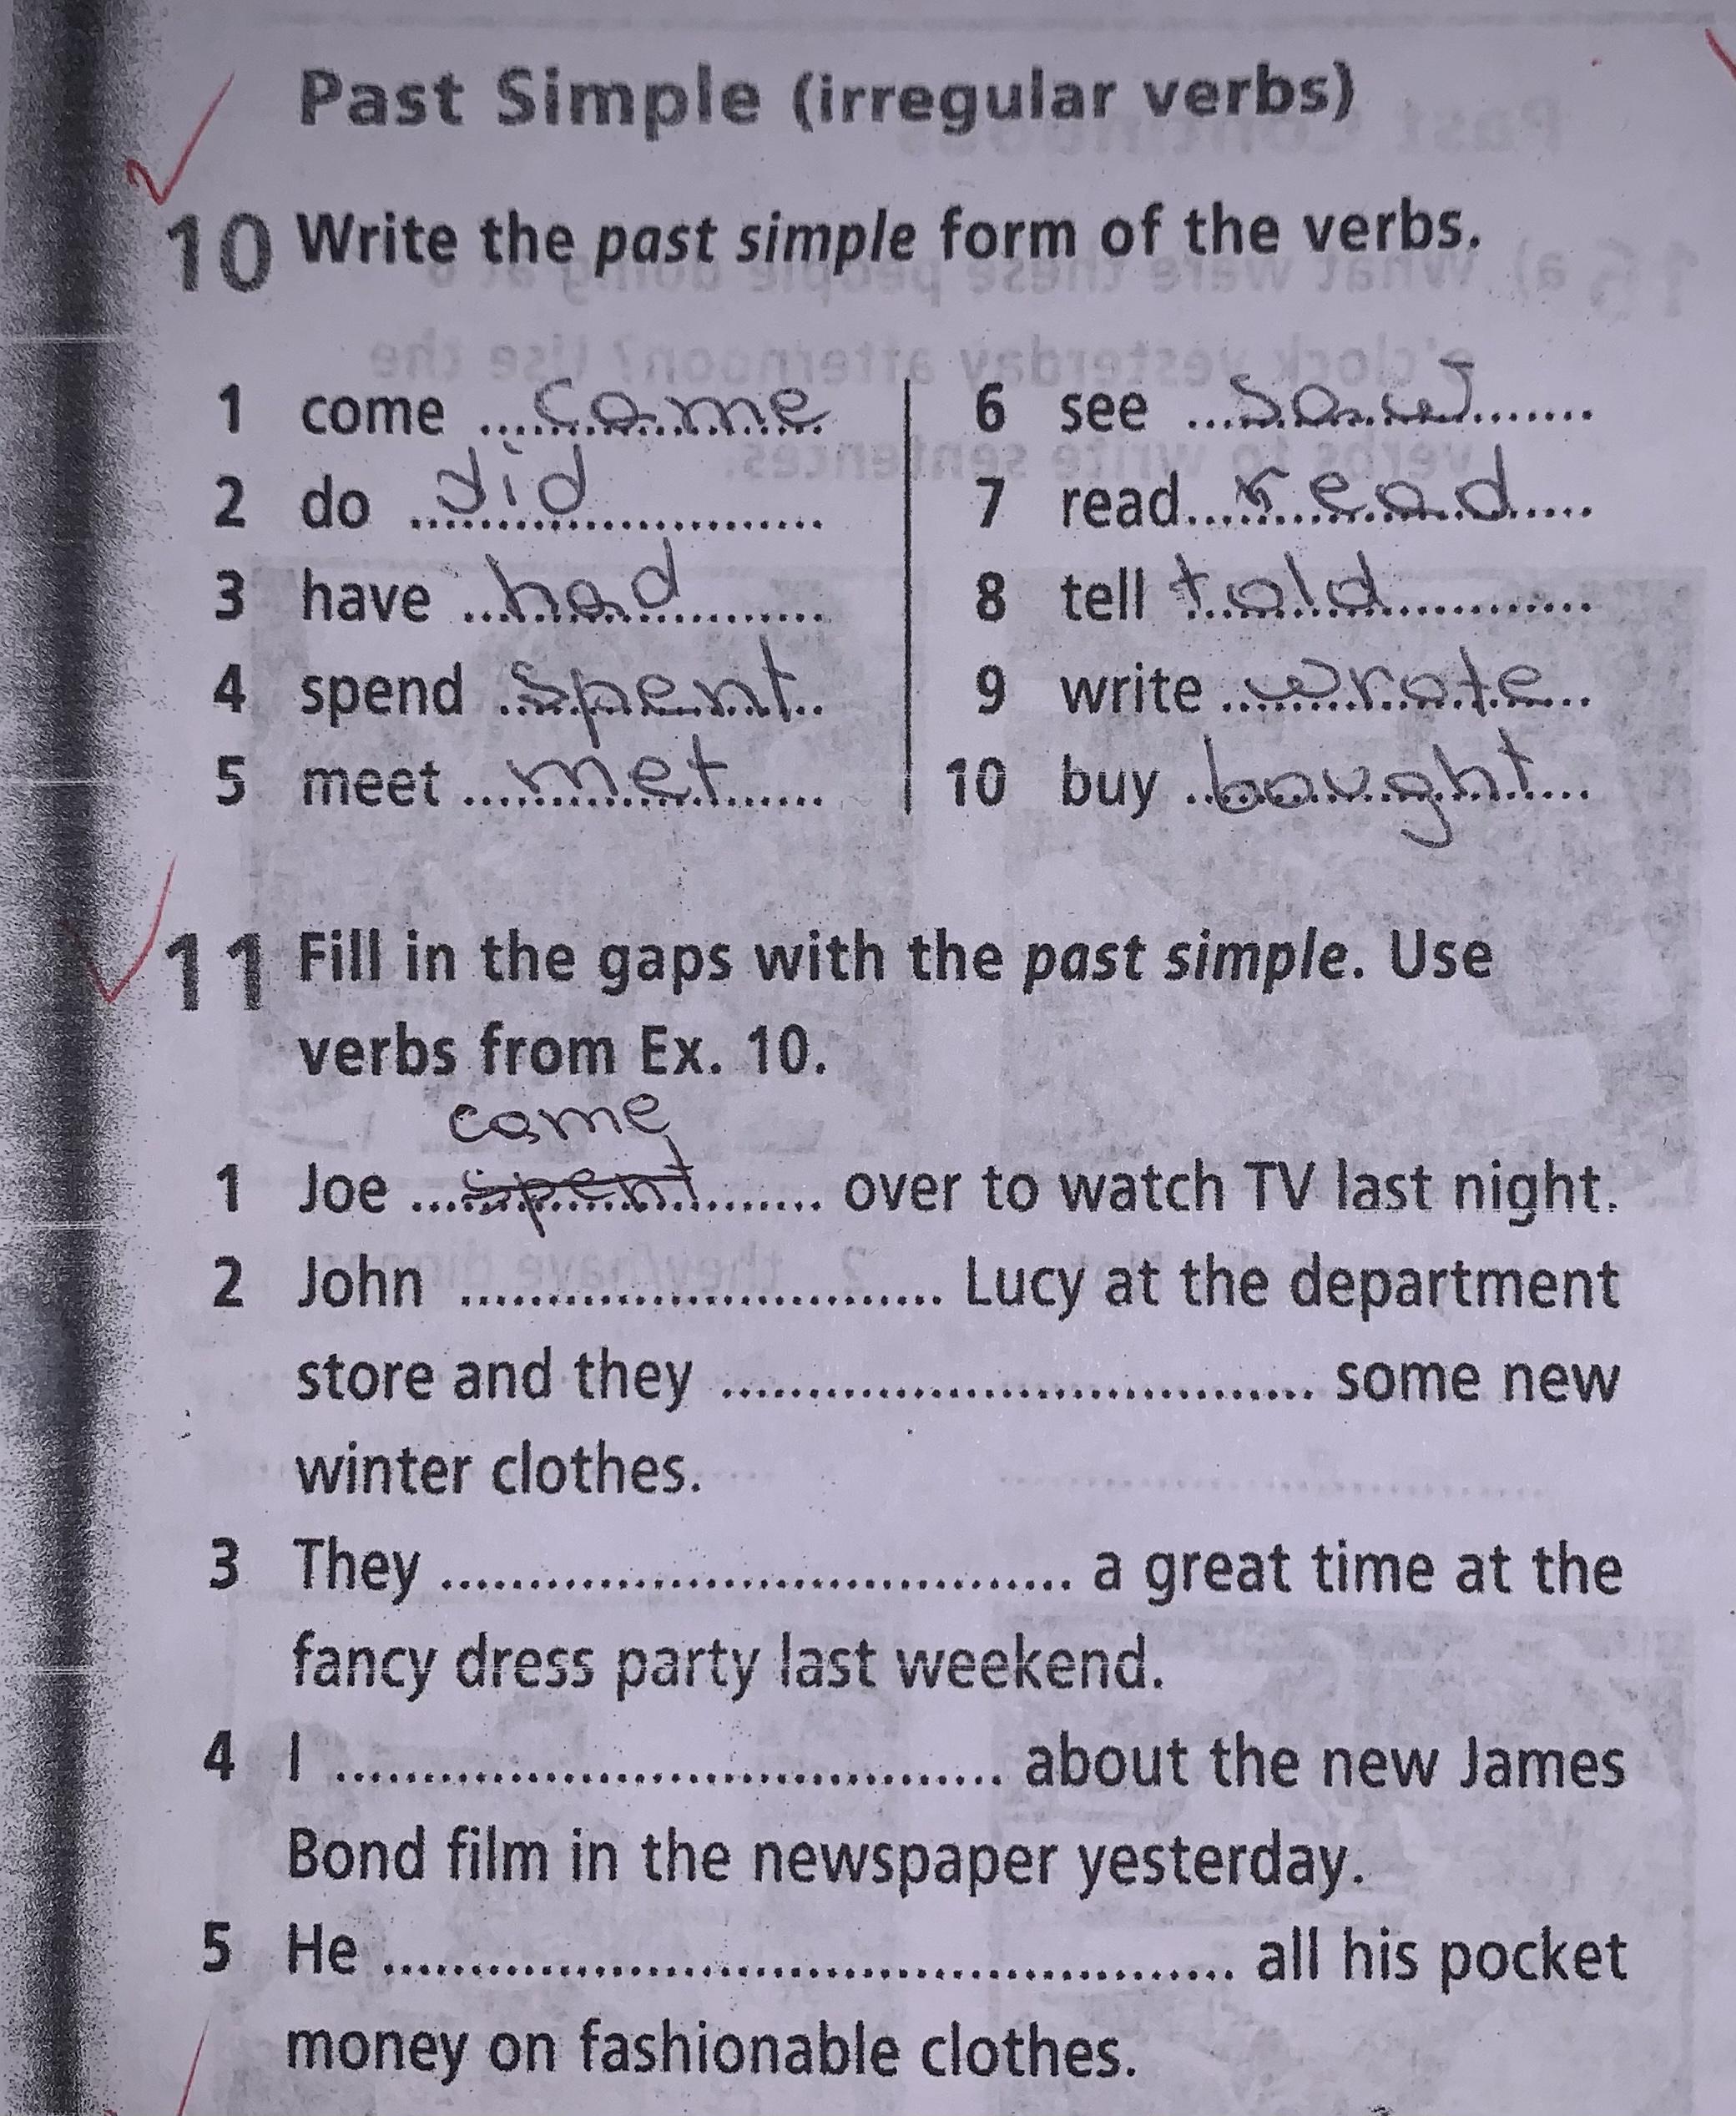 Past Simple (irregular verbs)
10 Write the past simple form of the verbs.
1 come ...came... 6 see ...saw...
2 do ...did... 7 read...read...
3 have ...had... 8 tell ...told...
4 spend ...spent... 9 write ...wrote...
5 meet ...met... 10 buy ...bought...
11 Fill in the gaps with the past simple. Use
verbs from Ex. 10.
came
1 Joe ...spent... over to watch TV last night.
2 John ........................... Lucy at the department
store and they ................................. some new
winter clothes.
3 They .................................... a great time at the
fancy dress party last weekend.
4 I ...................................... about the new James
Bond film in the newspaper yesterday.
5 He ................................................ all his pocket
money on fashionable clothes.